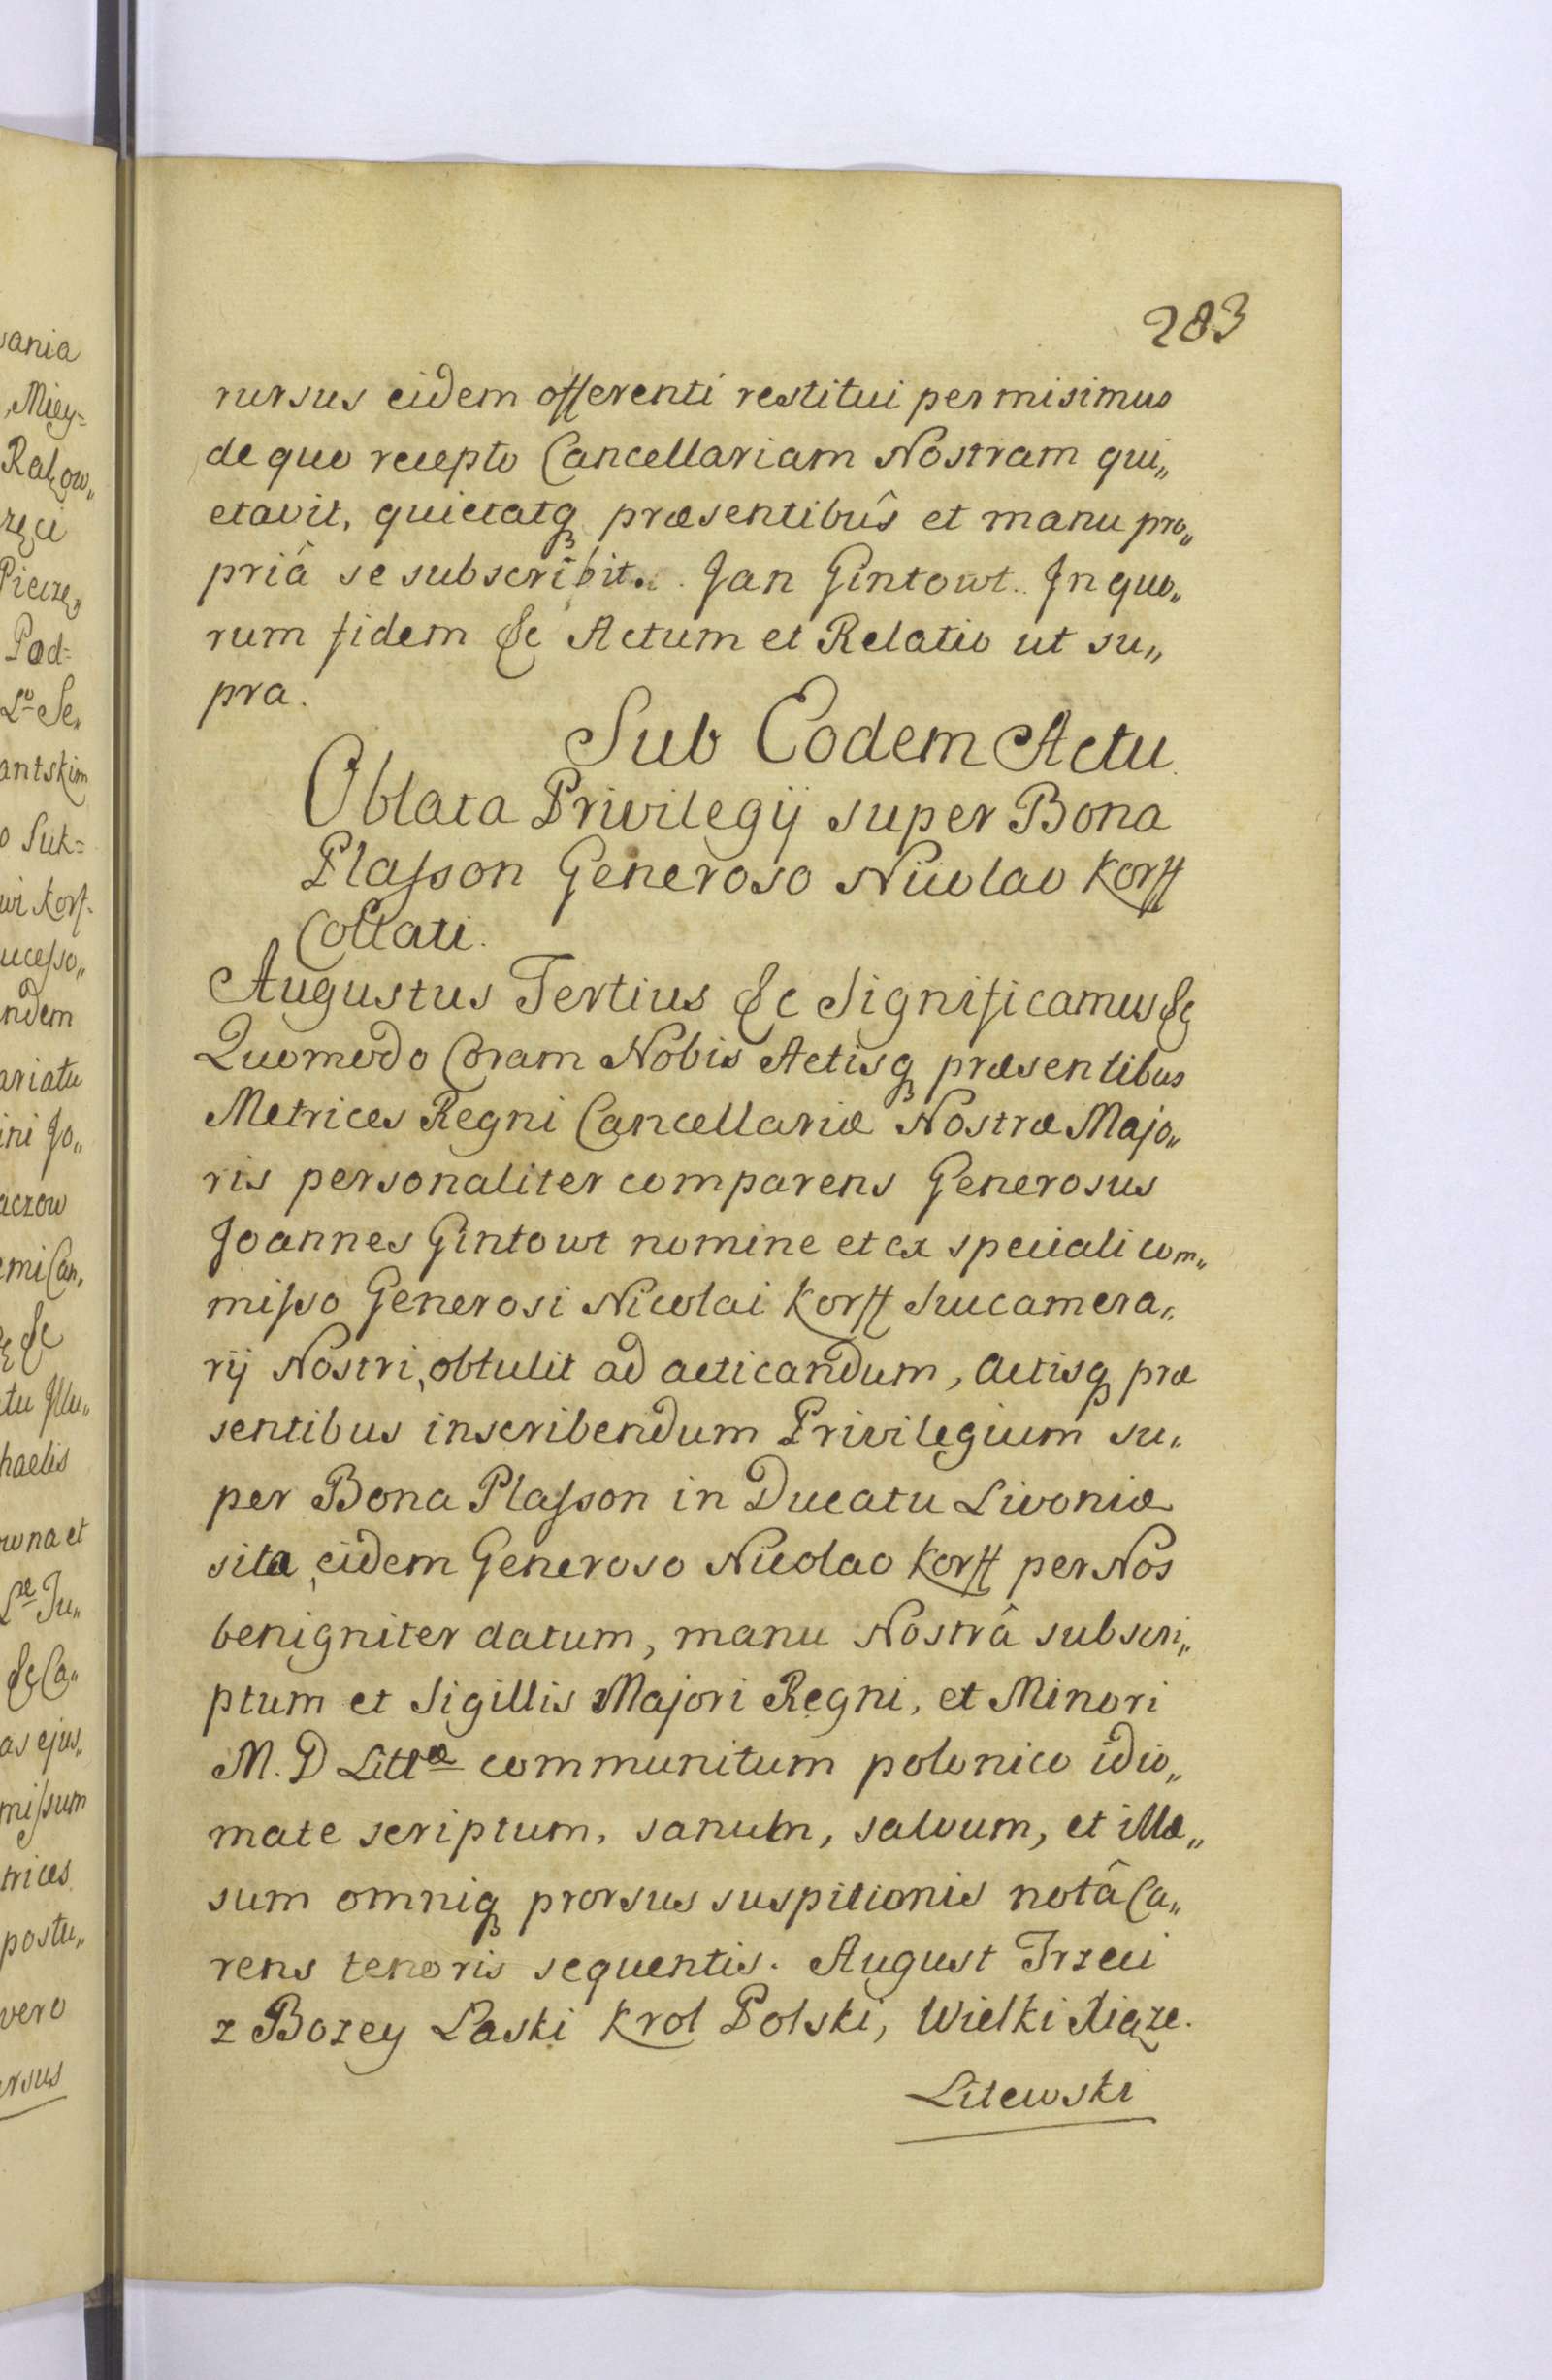 283
rursus eidem offerenti restitui permisimus
de quo recepto Cancellariam Nostram qui„
etavit, quietatq præsentibûs et manu pro„
priâ se subscribit. Jan Gintowt. In quo„
rum fidem &c Actum et Relatio ut su„
pra.
Sub Eodem Actu
Oblata Privilegij super Bona
Plasson Generoso Nicolao Korff
Collati.
Augustus Tertius &c Significamus &c
Quomodo Coram Nobis Actisq præsentibus
Metrices Regni Cancellariæ Nostræ Majo„
ris personaliter comparens Generosus
Joannes Gintowt nomine et ex speciali com„
misso Generosi Nicolai Korff Succamera„
rij Nostri, obtulit ad acticandum, Actisq præ
sentibus inscribendum Privilegium su„
per Bona Plasson in Ducatu Livoniæ
sita, eidem Generoso Nicolao Korff per Nos
benigniter datum, manu Nostrâ subscri„
ptum et Sigillis Majori Regni, et Minori
M. D Littæ communitum polonico idio„
mate scriptum, sanum, salvum, et illæ„
sum omniq prorsus suspitionis notâ Ca„
rens tenoris sequentis. August Trzeci
z Bozey Laski Krol Polski, Wielki Xiąze.
Litewski